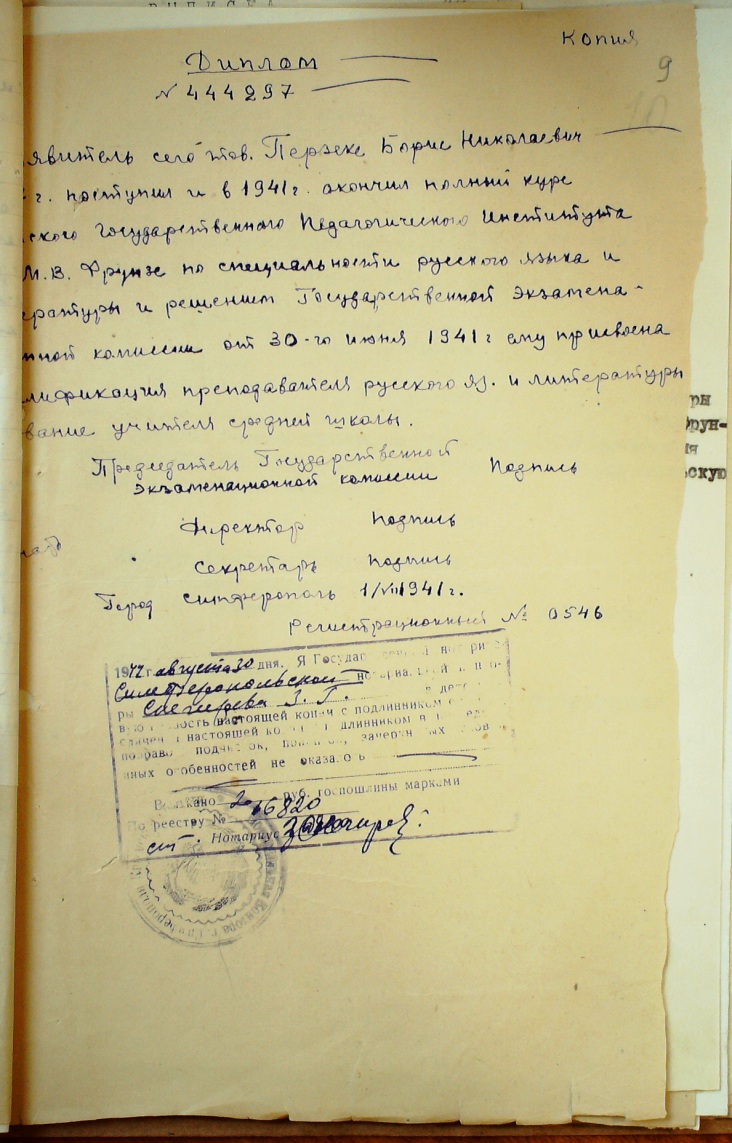 ВЫПИСКА
Копия
9
10
Диплом
№ 444297
явитель сего тов. Перзеке Борис Николаевич
г. поступил и в 1941 г. окончил полный курс
ского Государственного Педагогического Института
М.В. Фрунзе по специальности русского языка и
ературы и решением Государственной Экзамена-
нной комиссии от 30-го июня 1941 г ему присвоена
лификация преподавателя русского яз. и литературы
вание учителя средней школы.
Председатель Государственной
Экзаменационной комиссии Подпись
Директор Подпись
Секретарь Подпись
Город Симферополь 1/VII 1941 г.
Регистрационный № 0546
1947 г. августа 30 дня. Я Государ
Симферопольской нотариальной
ры З. Г.
ность настоящей копии с подлинником
настоящей
иных особенностей не оказалось
Взыскано 2 руб. госпошлины марками
По реестру № 66820
ст. Нотариус
ры
Фрун-
ия
ьскую